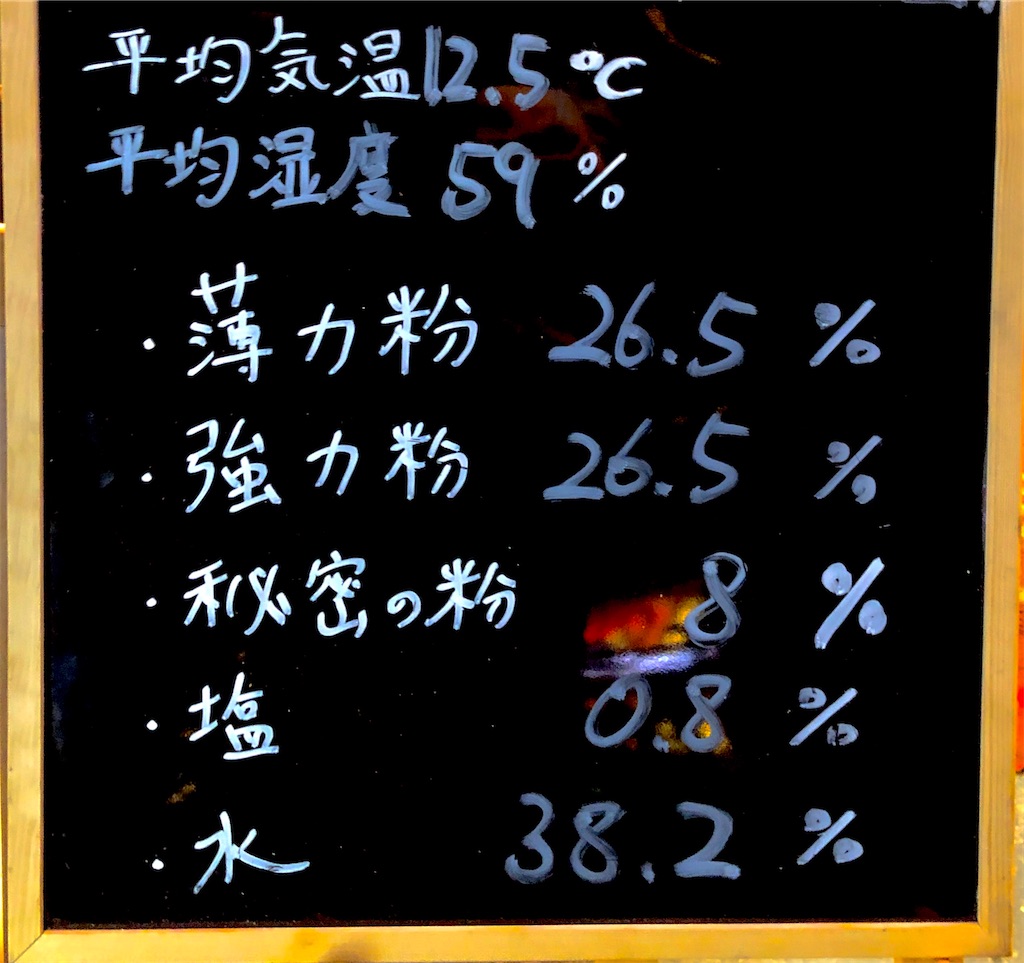 平均気温12.5℃
平均湿度 59%
・薄力粉 26.5%
・強力粉 26.5%
・秘密の粉 8%
・塩 0.8%
・水 38.2%